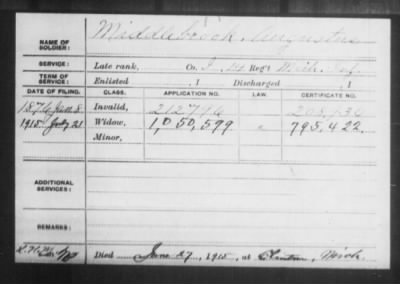 NAME OF SOLDIER: Middlebrook, Augustus
SERVICE: Late rank, Co. I, Reg't Mich. Inf.
TERM OF SERVICE: Enlisted , 1 Discharged , 1
DATE OF FILING. CLASS. APPLICATION NO. LAW. CERTIFICATE NO.
1876 Invalid, 212796
1915 July 21 Widow, 1,050,599 " 795,422
Minor,
ADDITIONAL SERVICES:
REMARKS:
Died June 27, 1915, at Mich.